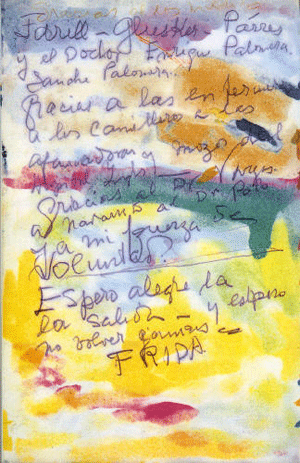 Farill – Glusker – Parres
y el Doctor Enrique Palomera
Sanche Palomera
Gracias a las enfermeras
a los camilleros a las
afanadoras y mozos del
Gracias al Dr Vargas
a Navarro al Dr Polo
y a mi fuerza de
Voluntad.
Espero alegre la
la salida – y espero
no volver jamás –
FRIDA